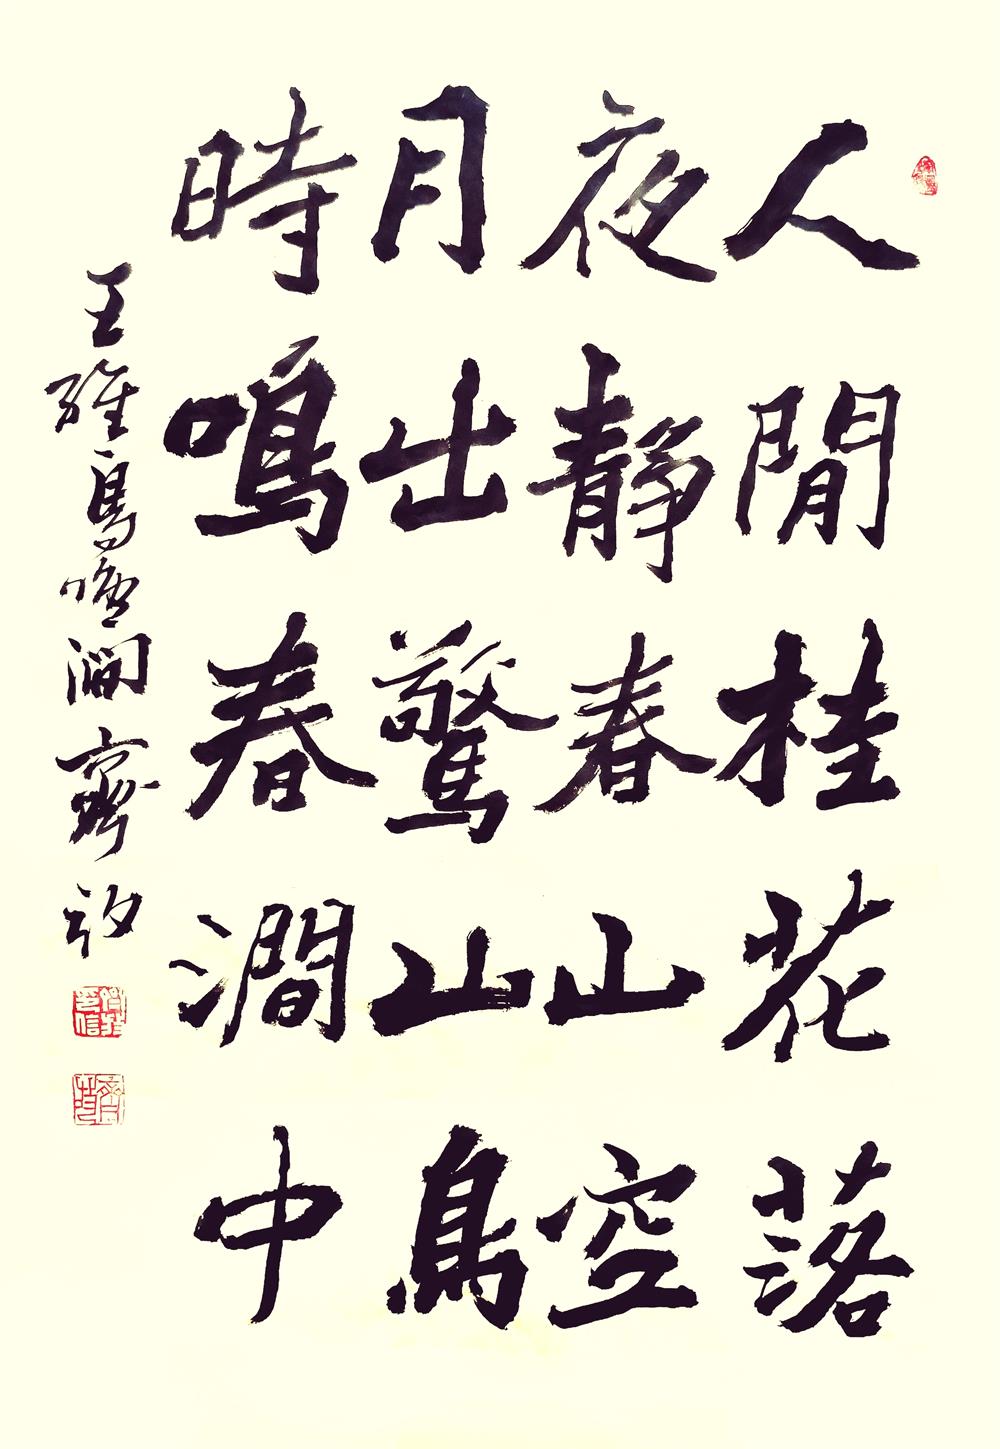 人閒桂花落
夜靜春山空
月出驚山鳥
時鳴春澗中
王維鳥鳴澗